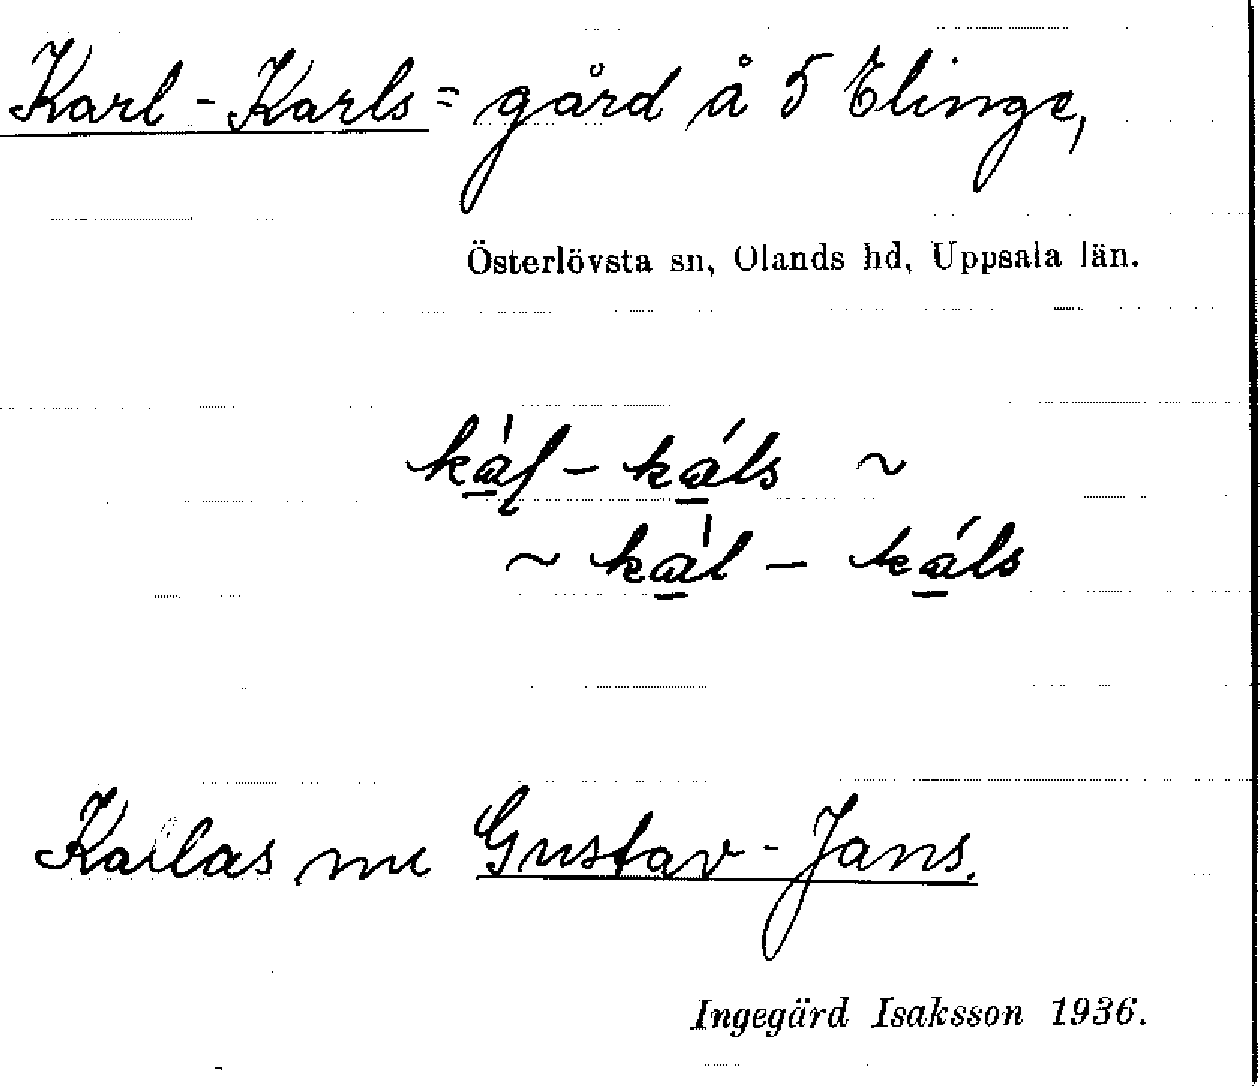 Karl-Karls = gård å 5 Elinge,
Österlövsta sn, Olands hd, Uppsala län.
ka̱̍l - ká̱ls ~
~ ka̱̍l - ká̱ls
Kallas nu Gustav-Jans.
Ingegärd Isaksson 1936.